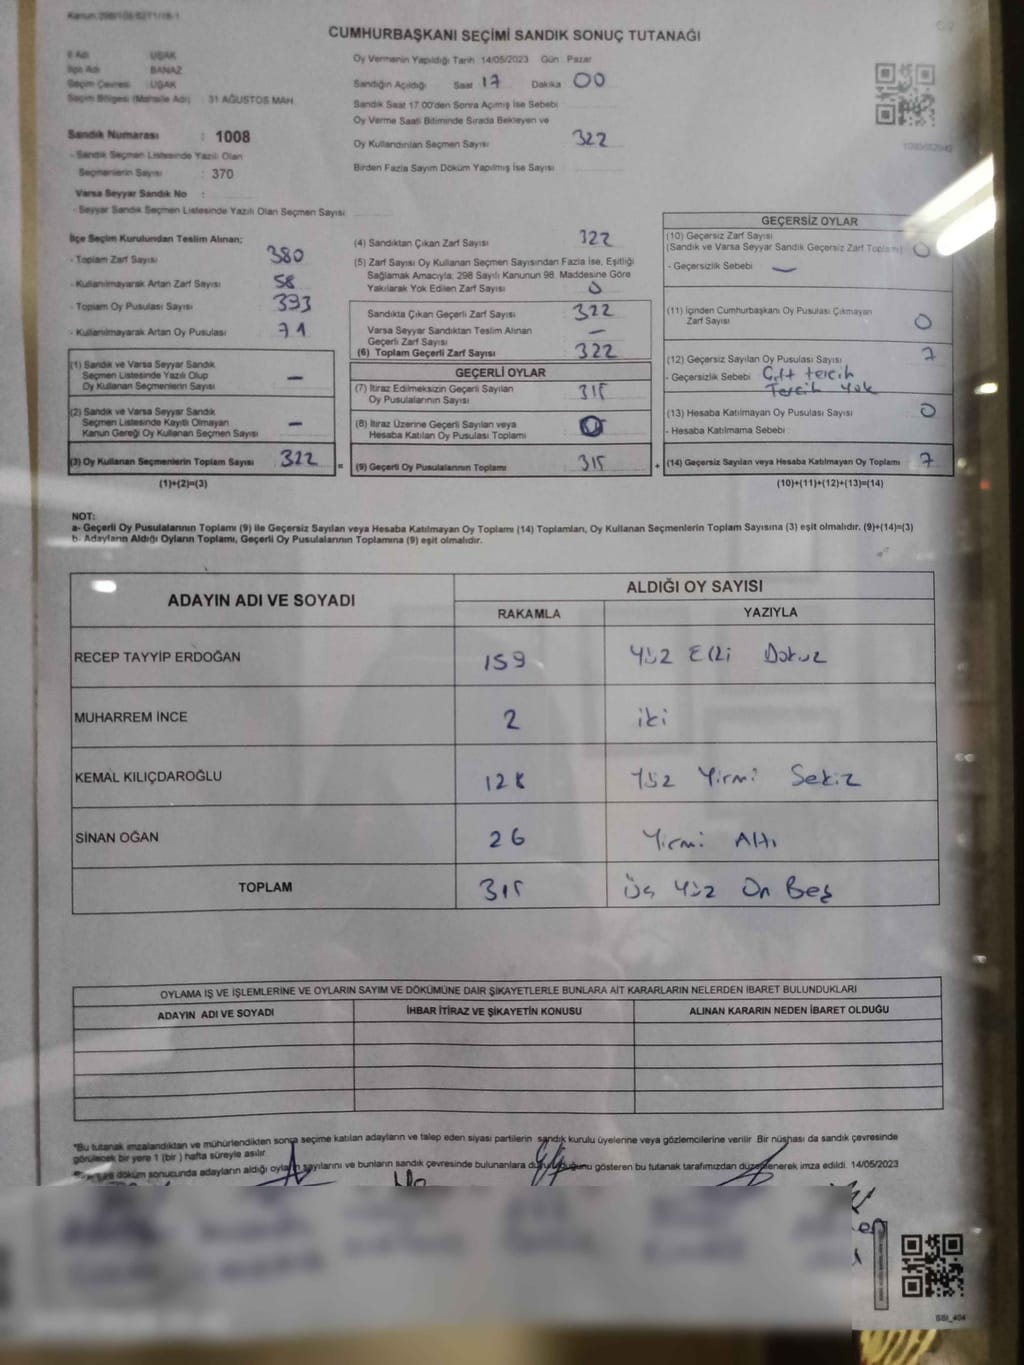 CUMHURBAŞKANI SEÇİMİ SANDIK SONUÇ TUTANAĞI
İl Adı : UŞAK
İlçe Adı : BANAZ
Seçim Çevresi : UŞAK
Seçim Bölgesi (Mahalle Adı) : 31 AĞUSTOS MAH.
Sandık Numarası : 1008
- Sandık Seçmen Listesinde Yazılı Olan
Seçmenlerin Sayısı : 370
Varsa Seyyar Sandık No :
- Seyyar Sandık Seçmen Listesinde Yazılı Olan Seçmen Sayısı
Oy Vermenin Yapıldığı Tarih 14/05/2023 Gün Pazar
Sandığın Açıldığı Saat 17 Dakika 00
Sandık Saat 17.00'den Sonra Açımış İse Sebebi
Oy Verme Saati Bitiminde Sırada Bekleyen ve
Oy Kullandırılan Seçmen Sayısı 322
Birden Fazla Sayım Döküm Yapılmış İse Sayısı
İlçe Seçim Kurulundan Teslim Alınan;
- Toplam Zarf Sayısı 380
- Kullanılmayarak Artan Zarf Sayısı 58
- Toplam Oy Pusulası Sayısı 393
- Kullanılmayarak Artan Oy Pusulası 71
(1) Sandık ve Varsa Seyyar Sandık
Seçmen Listesinde Yazılı Olup
Oy Kullanan Seçmenlerin Sayısı —
(2) Sandık ve Varsa Seyyar Sandık
Seçmen Listesinde Kayıtlı Olmayan
Kanun Gereği Oy Kullanan Seçmen Sayısı —
(3) Oy Kullanan Seçmenlerin Toplam Sayısı 322
(1)+(2)=(3)
(4) Sandıktan Çıkan Zarf Sayısı 322
(5) Zarf Sayısı Oy Kullanan Seçmen Sayısından Fazla İse, Eşitliği
Sağlamak Amacıyla; 298 Sayılı Kanunun 98. Maddesine Göre
Yakılarak Yok Edilen Zarf Sayısı 0
Sandıkta Çıkan Geçerli Zarf Sayısı 322
Varsa Seyyar Sandıktan Teslim Alınan
Geçerli Zarf Sayısı —
(6) Toplam Geçerli Zarf Sayısı 322
GEÇERLİ OYLAR
(7) İtiraz Edilmeksizin Geçerli Sayılan
Oy Pusulalarının Sayısı 315
(8) İtiraz Üzerine Geçerli Sayılan veya
Hesaba Katılan Oy Pusulası Toplamı 0
= (9) Geçerli Oy Pusulalarının Toplamı 315
GEÇERSİZ OYLAR
(10) Geçersiz Zarf Sayısı
(Sandık ve Varsa Seyyar Sandık Geçersiz Zarf Toplamı) 0
- Geçersizlik Sebebi —
(11) İçinden Cumhurbaşkanı Oy Pusulası Çıkmayan
Zarf Sayısı 0
(12) Geçersiz Sayılan Oy Pusulası Sayısı 7
- Geçersizlik Sebebi Çift tercih
Tercih Yok
(13) Hesaba Katılmayan Oy Pusulası Sayısı 0
- Hesaba Katılmama Sebebi :
+ (14) Geçersiz Sayılan veya Hesaba Katılmayan Oy Toplamı 7
(10)+(11)+(12)+(13)=(14)
NOT:
a- Geçerli Oy Pusulalarının Toplamı (9) ile Geçersiz Sayılan veya Hesaba Katılmayan Oy Toplamı (14) Toplamları, Oy Kullanan Seçmenlerin Toplam Sayısına (3) eşit olmalıdır. (9)+(14)=(3)
b- Adayların Aldığı Oyların Toplamı, Geçerli Oy Pusulalarının Toplamına (9) eşit olmalıdır.
ADAYIN ADI VE SOYADI ALDIĞI OY SAYISI
RAKAMLA YAZIYLA
RECEP TAYYİP ERDOĞAN 159 Yüz Elli Dokuz
MUHARREM İNCE 2 iki
KEMAL KILIÇDAROĞLU 128 Yüz Yirmi Sekiz
SİNAN OĞAN 26 Yirmi Altı
TOPLAM 315 Üç Yüz On Beş
OYLAMA İŞ VE İŞLEMLERİNE VE OYLARIN SAYIM VE DÖKÜMÜNE DAİR ŞİKAYETLERLE BUNLARA AİT KARARLARIN NELERDEN İBARET BULUNDUKLARI
ADAYIN ADI VE SOYADI İHBAR İTİRAZ VE ŞİKAYETİN KONUSU ALINAN KARARIN NEDEN İBARET OLDUĞU
*Bu tutanak imzalandıktan ve mühürlendikten sonra seçime katılan adayların ve talep eden siyasi partilerin sandık kurulu üyelerine veya gözlemcilerine verilir. Bir nüshası da sandık çevresinde
görülecek bir yere 1 (bir) hafta süreyle asılır.
döküm sonucunda adayların aldığı oyların sayılarını ve bunların sandık çevresinde bulunanlara gösteren bu tutanak tarafımızdan düzenlenerek imza edildi. 14/05/2023
SSI_404